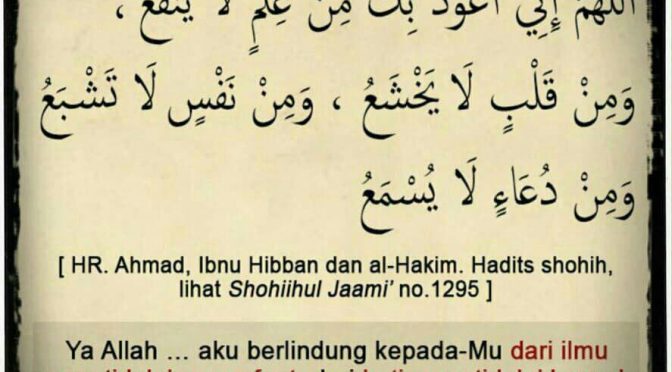 اللهم إني أعوذ بك من علم لا ينفع ،
وَمِنْ قَلْبٍ لَا يَخْشَعُ ، وَمِنْ نَفْسٍ لَا تَشْبَعُ
وَمِنْ دُعَاءٍ لَا يُسْمَعُ
[ HR. Ahmad, Ibnu Hibban dan al-Hakim. Hadits shohih,
lihat Shohiihul Jaami' no.1295 ]
Ya Allah ... aku berlindung kepada-Mu dari ilmu